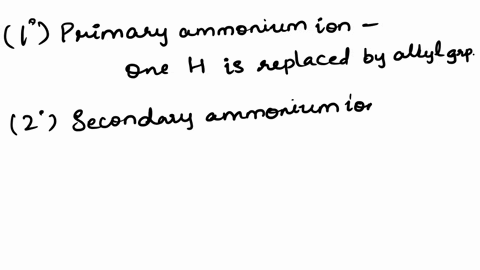 (1°) Primary ammonium ion -
one H is replaced by alkyl grp.
(2°) Secondary ammonium io